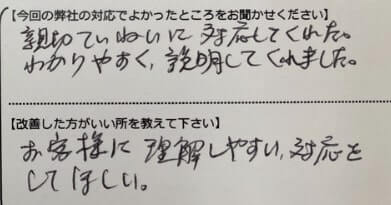 【今回の弊社の対応でよかったところをお聞かせください】
親切ていねいに対応してくれた。
わかりやすく、説明してくれました。
【改善した方がいい所を教えて下さい】
お客様に理解しやすい、対応を
してほしい。